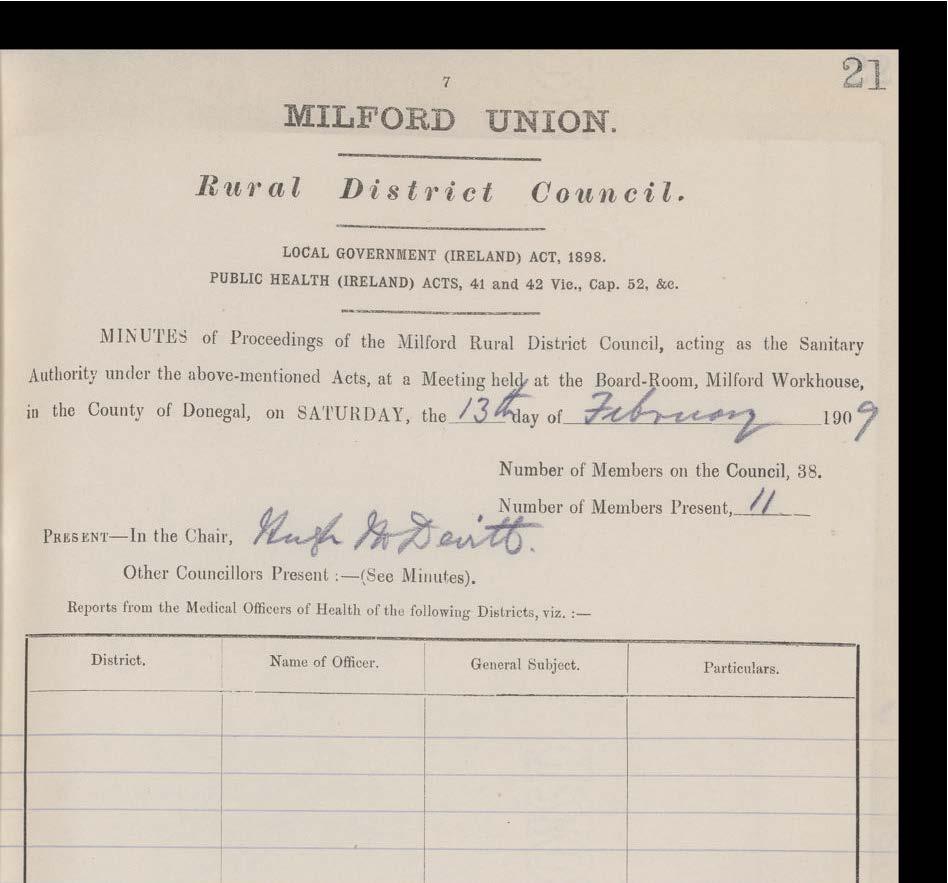 21
7
MILFORD UNION.
Rural District Council.
LOCAL GOVERNMENT (IRELAND) ACT, 1898.
PUBLIC HEALTH (IRELAND) ACTS, 41 and 42 Vic., Cap. 52, &c.
MINUTES of Proceedings of the Milford Rural District Council, acting as the Sanitary
Authority under the above-mentioned Acts, at a Meeting held at the Board-Room, Milford Workhouse,
in the County of Donegal, on SATURDAY, the 13th day of February 1909
Number of Members on the Council, 38.
Number of Members Present, 11
PRESENT—In the Chair, Hugh McDevitt.
Other Councillors Present :—(See Minutes).
Reports from the Medical Officers of Health of the following Districts, viz. :—
District. Name of Officer. General Subject. Particulars.